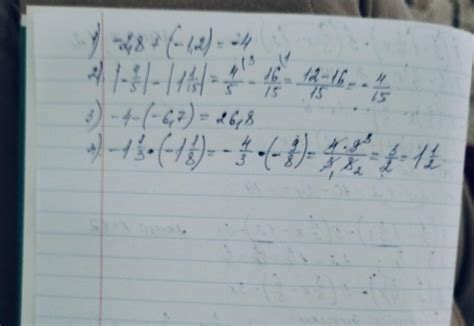 1) -2,8 + (-1,2) = -4
2) |-4/5| - |1 1/15| = 4/5 (3 - 16/15 (1 = 12-16/15 = -4/15
3) -4-(-6,7) = 26,8
4) -1 1/3 · (-1 1/8) = -4/3 · (-9/8) = 4·9 3/3 1 8 2 = 3/2 = 1 1/2